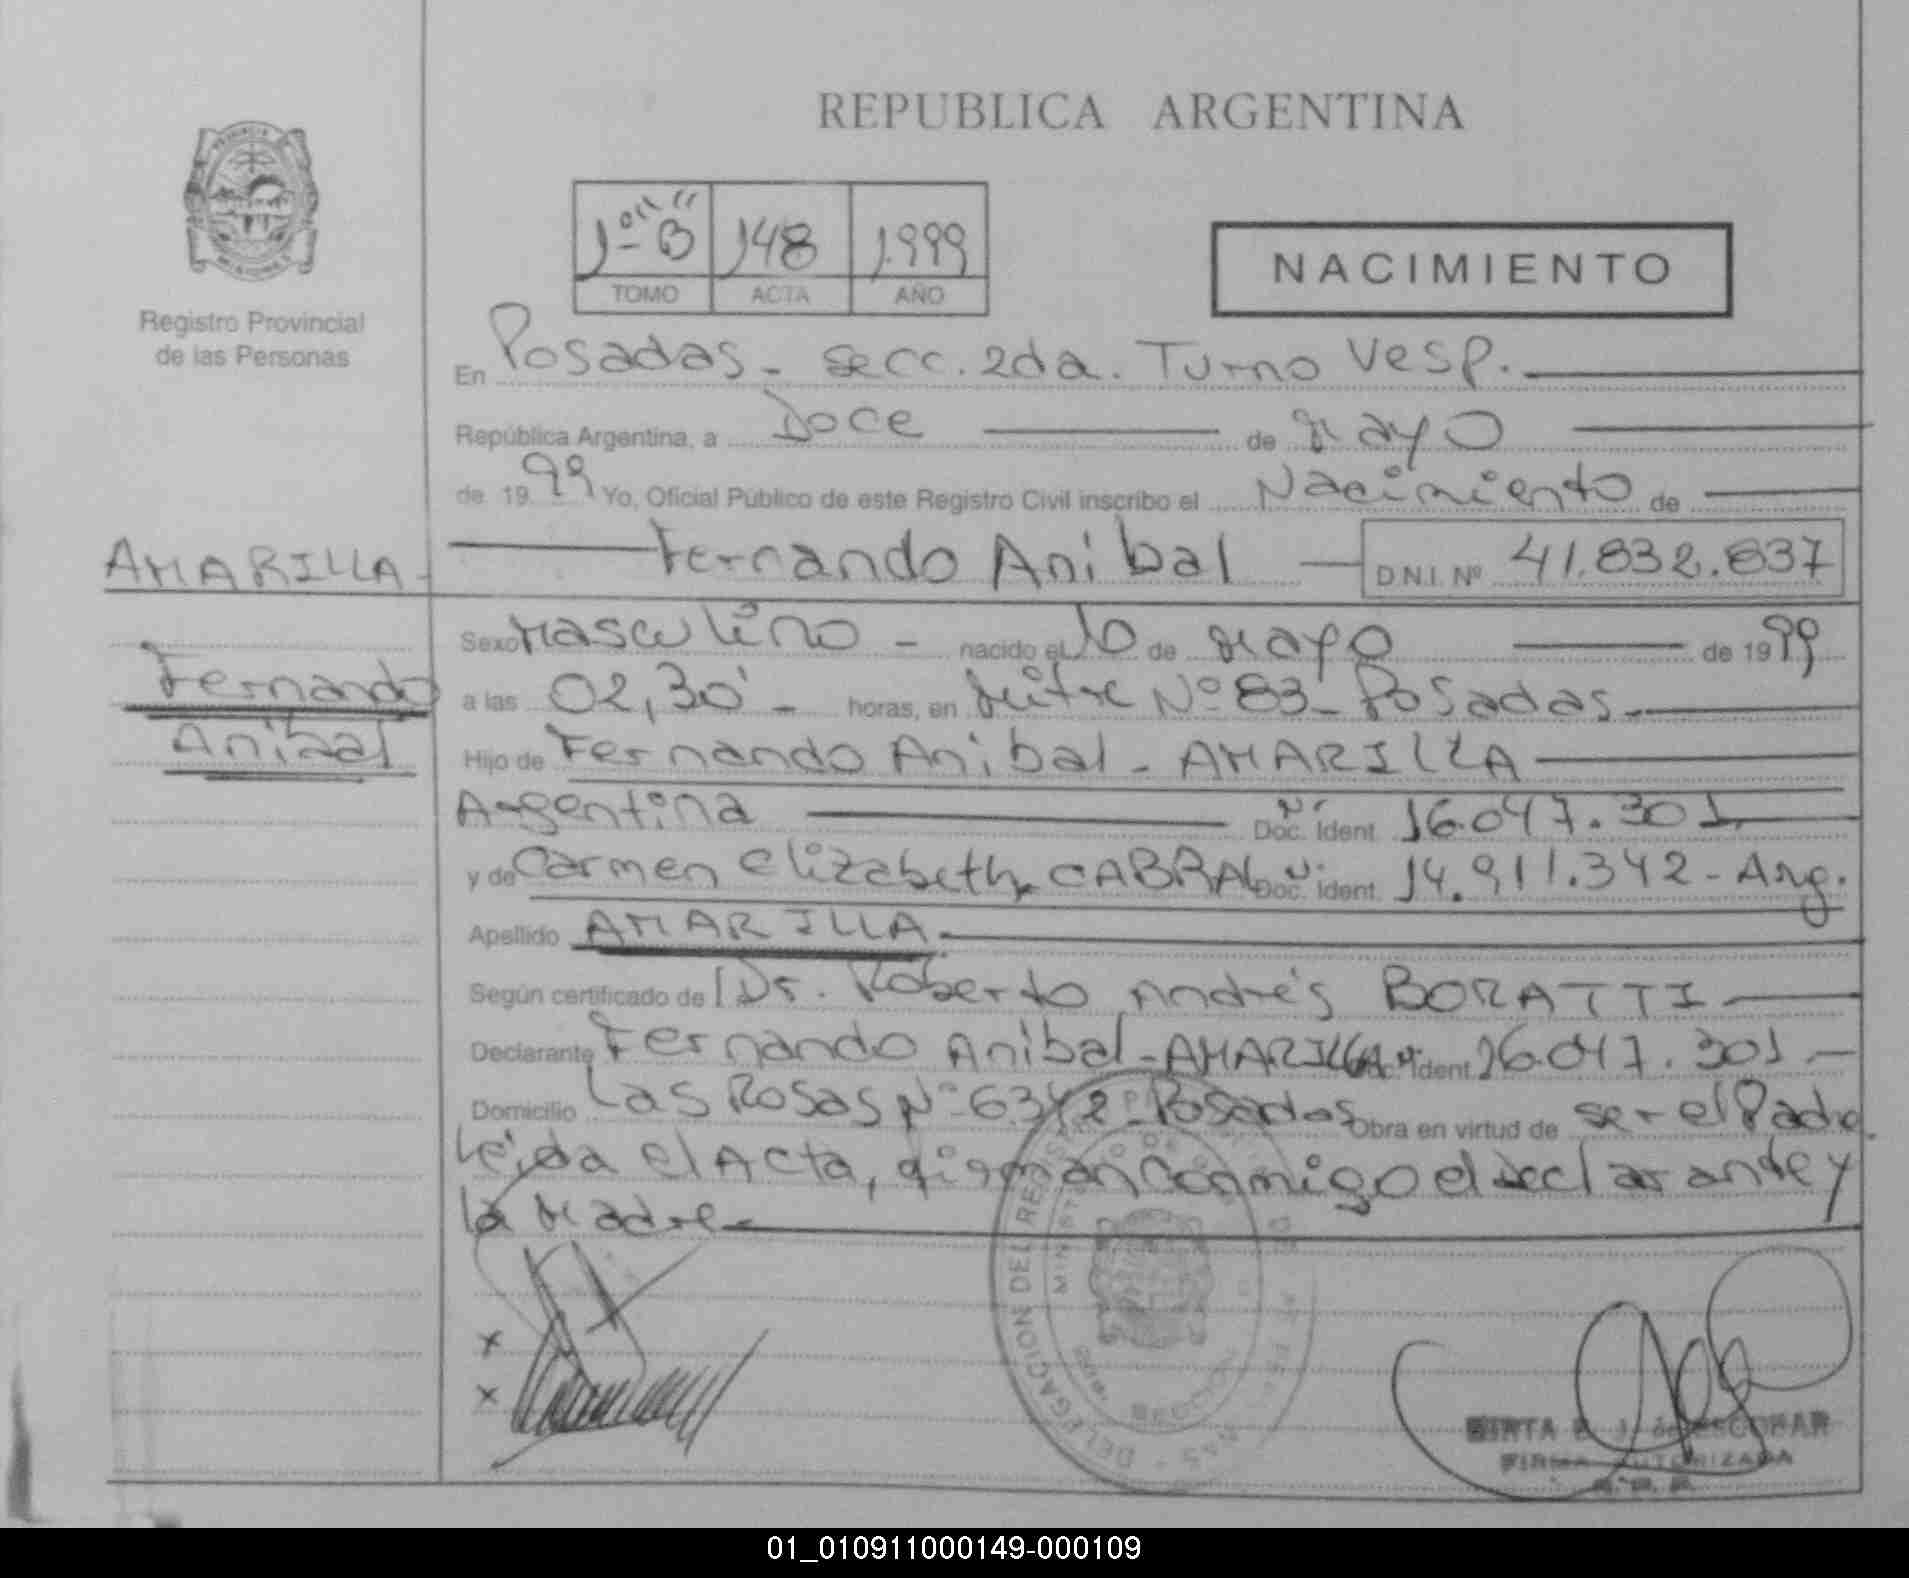 REPUBLICA ARGENTINA
1º "B" 148 1.999
TOMO ACTA AÑO
NACIMIENTO
Registro Provincial
de las Personas
En Posadas - secc. 2da. Turno Vesp.
República Argentina, a Doce de Mayo
de 1999 Yo, Oficial Público de este Registro Civil inscribo el Nacimiento de
AMARILLA - Fernando Anibal D.N.I. Nº 41.832.837
Fernando
Anibal
Sexo Masculino - nacido el 10 de Mayo de 1999
a las 02,30' - horas, en Mitre Nº 83 - Posadas -
Hijo de Fernando Anibal - AMARILLA
Argentina Doc. Ident. 16.047.301
y de Carmen Elizabeth CABRAL Doc. Ident. 14.911.342 - Arg.
Apellido AMARILLA -
Según certificado de Dr. Roberto Andrés BORATTI
Declarante Fernando Anibal - AMARILLA Doc. Ident. 16.047.301 -
Domicilio Las Rosas Nº 6342 - Posadas Obra en virtud de ser el Padre.
Leida el Acta, firman conmigo el declarante y
la Madre -
x
x
DELEGACION DEL
MIRTA E. J. de ESCOBAR
FIRMA AUTORIZADA
01_010911000149-000109